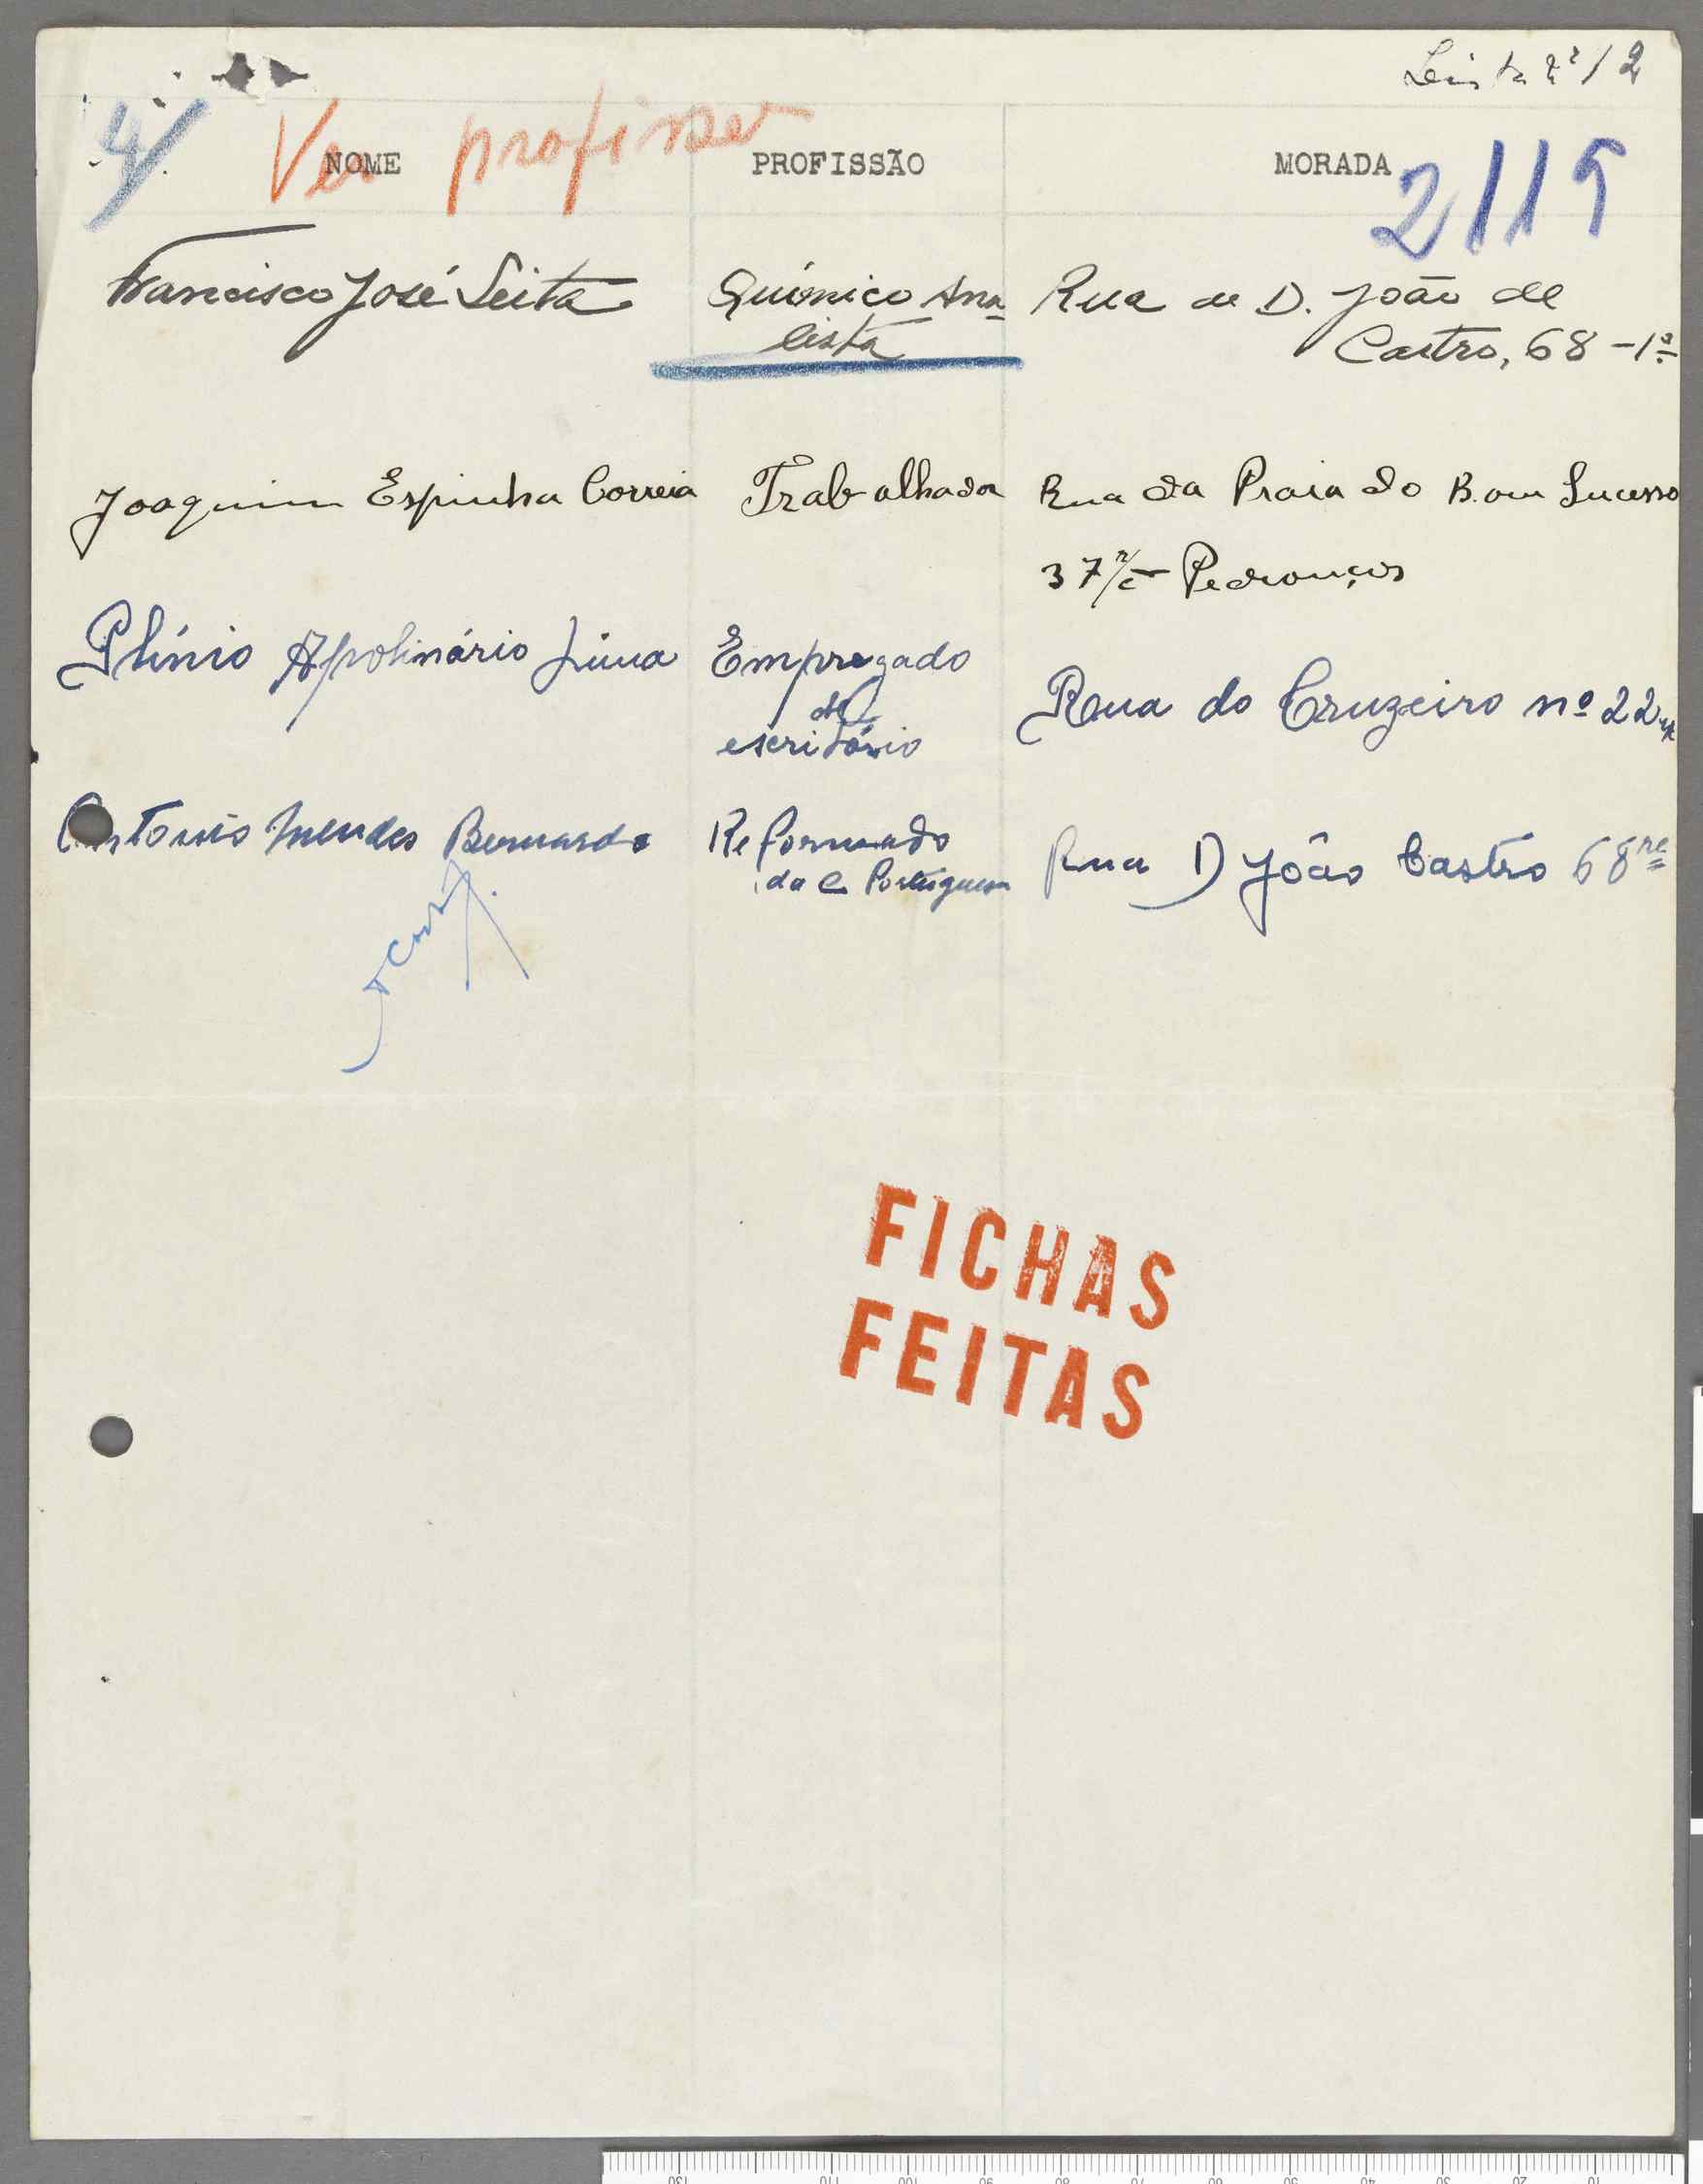 Lista nº 12
4/ Ver profissão 2115
NOME PROFISSÃO MORADA
Francisco José Leita Químico Ana Rua de D. João de
lista Castro, 68-1º
Joaquim Espinha Correia Trabalhador Rua da Praia do Bom Sucesso
37 r/c Pedrouços
Plínio Apolinário Lima Empregado
de
escritório Rua do Cruzeiro nº 22
António Mendes Bernardo Reformado Rua D João Castro 68 rc
da C Portuguesa
FICHAS
FEITAS